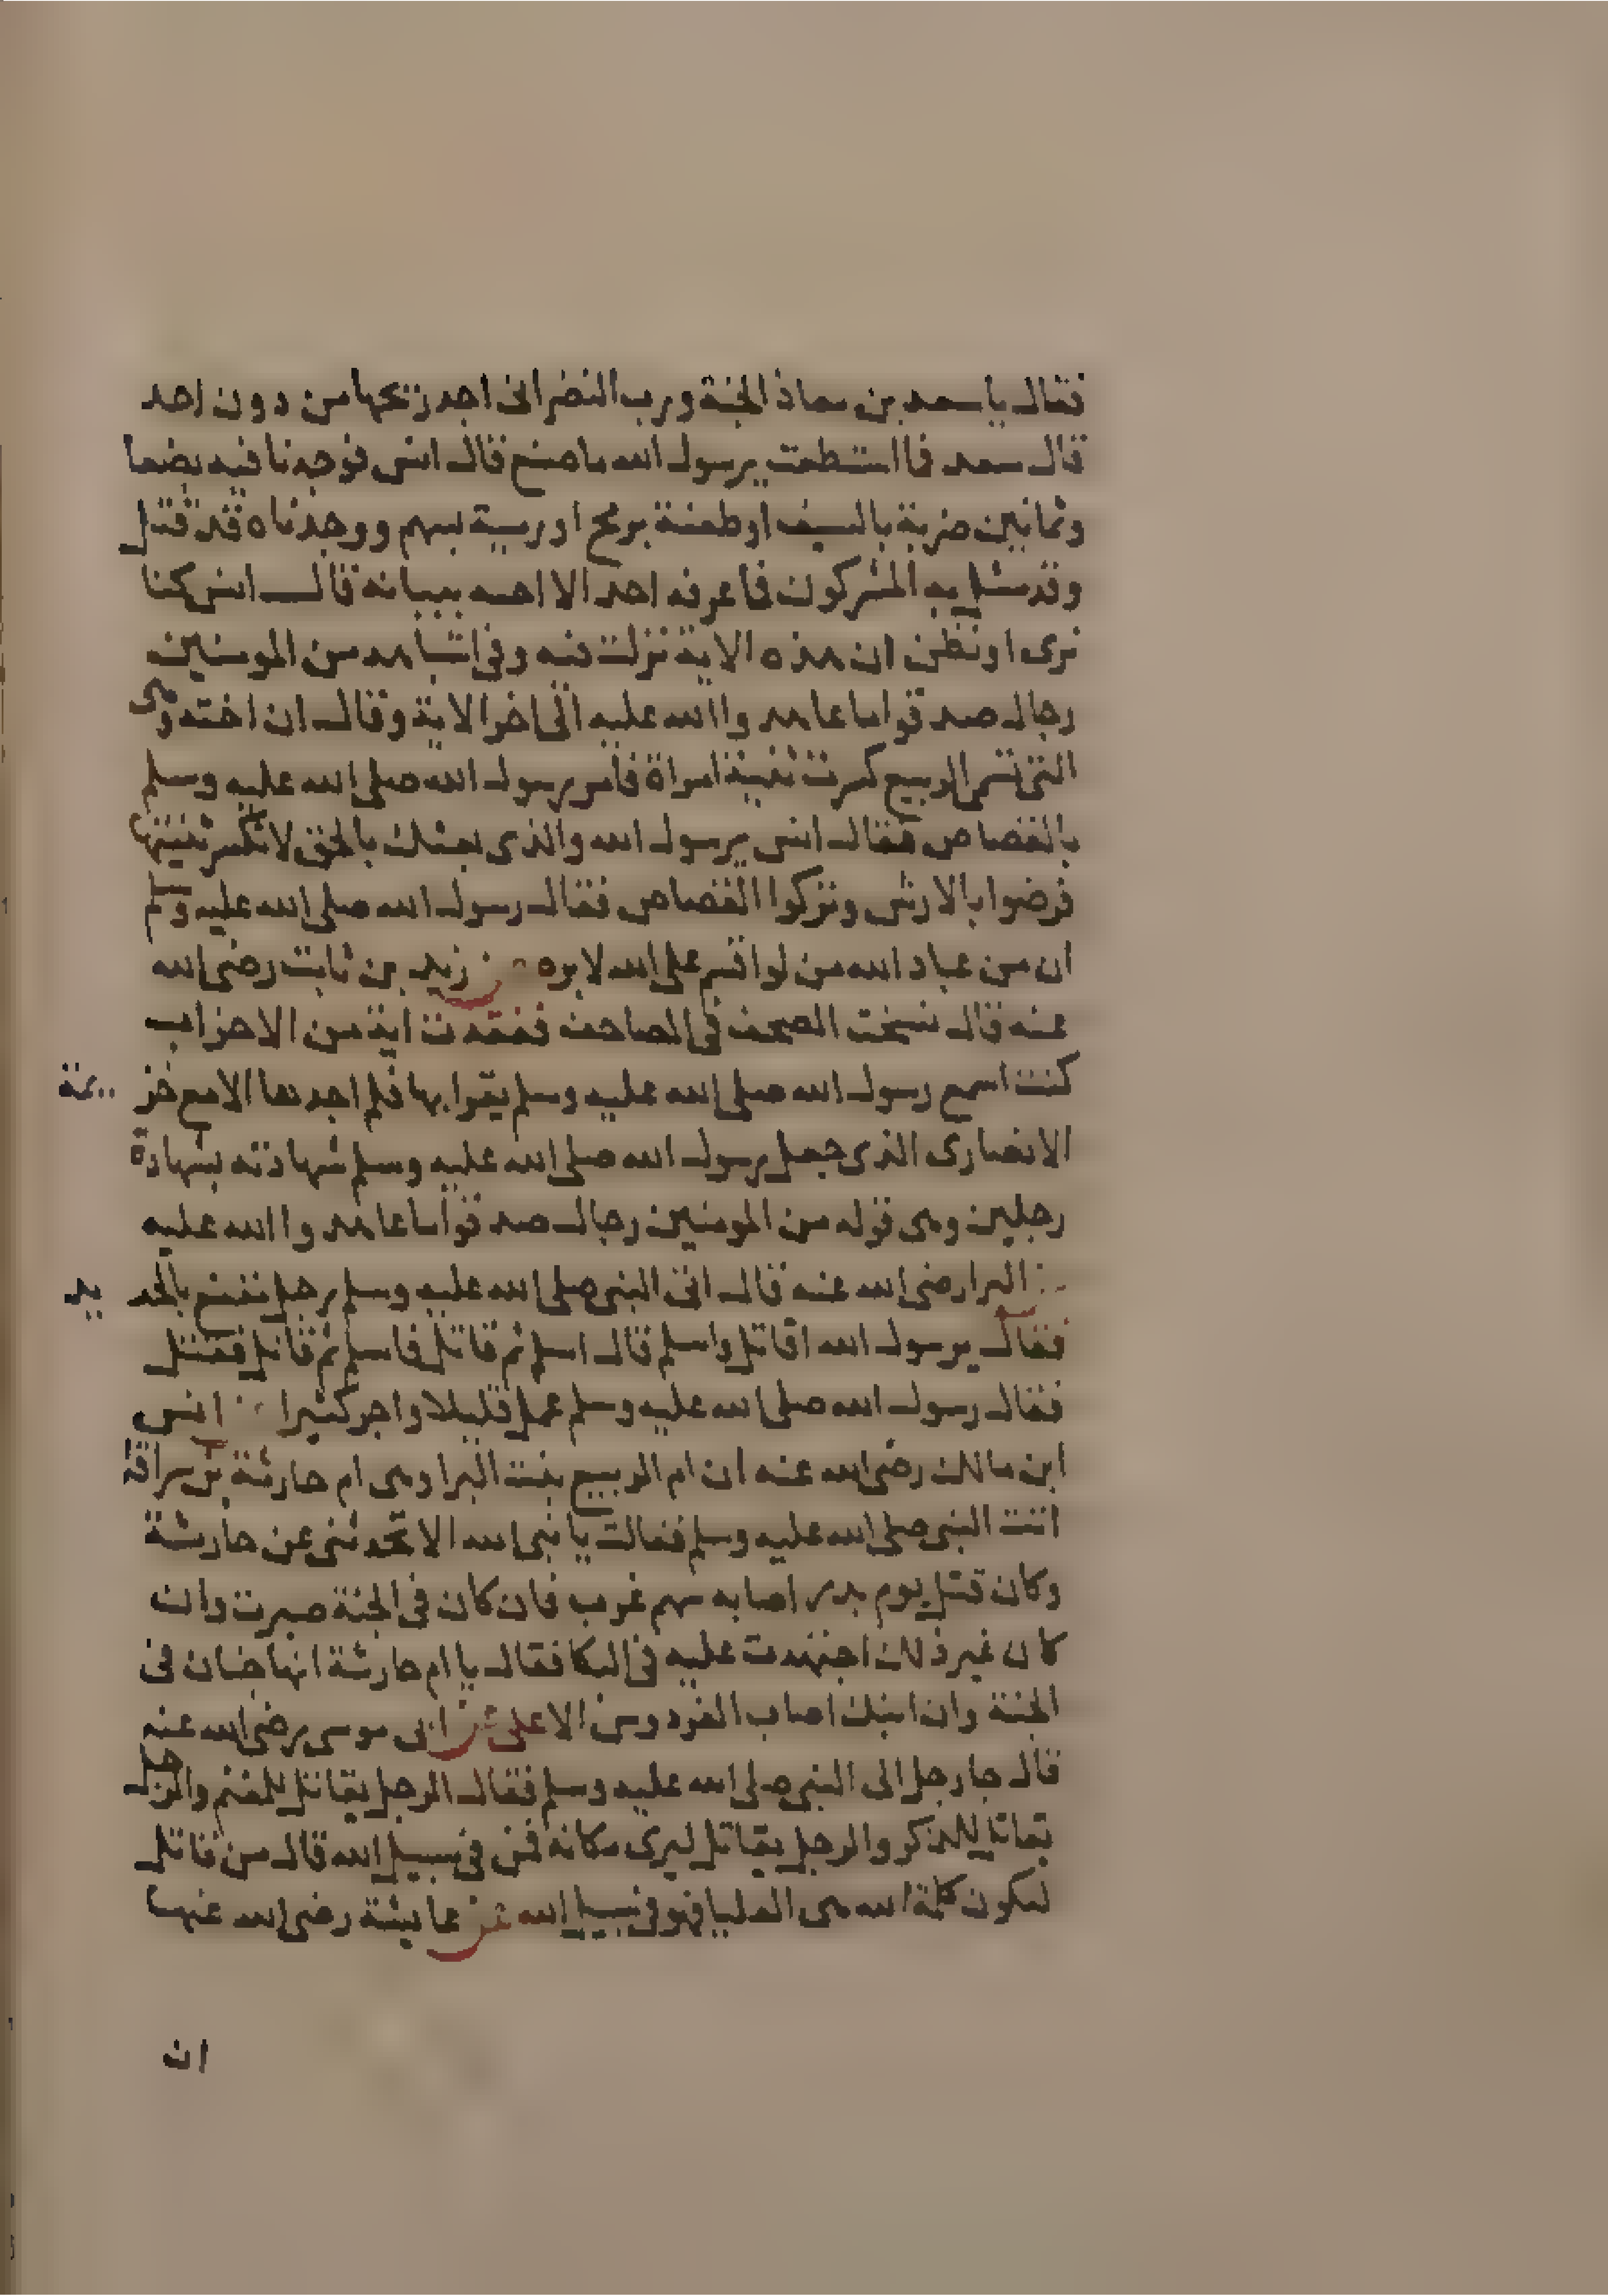 فقال يا سعد بن معاذ الجنة ورب النضر انى اجد ريحها من دون احد
قال سعد فما استطعت يرسول الله ما صنع قال انس فوجدنا فيه بضعا
وثمانين ضربة بالسيف او طعنة برمح او رمية بسهم ووجدناه قد قتل
وقد مثل به المشركون فما عرفه احد الا اخته ببنانه قال انس كنا
نرى او نظن ان هذه الاية نزلت فيه وفى اشباهه من المومنين
رجال صدقوا ما عاهدوا الله عليه الى اخر الاية وقال ان اخته وهى
التى تسمى الربيع كسرت ثنية امراة فامر رسول الله صلى الله عليه وسلم
بالقصاص فقال انس يرسول الله والذى بعثك بالحق لا تكسر ثنيتها
فرضوا بالارش وتركوا القصاص فقال رسول الله صلى الله عليه وسلم
ان من عباد الله من لو اقسم على الله لابره عن زيد بن ثابت رضى الله
عنه قال نسخت الصحف فى المصاحف ففقدت اية من الاحزاب
كنت اسمع رسول الله صلى الله عليه وسلم يقرا بها فلم اجدها الا مع خزيمة
الانصارى الذى جعل رسول الله صلى الله عليه وسلم شهادته بشهادة
رجلين وهى قوله من المومنين رجال صدقوا ما عاهدوا الله عليه
عن البرا رضى الله عنه قال اتى النبى صلى الله عليه وسلم رجل مقنع بالحديد
فقال يرسول الله اقاتل واسلم قال اسلم ثم قاتل فاسلم ثم قاتل فقتل
فقال رسول الله صلى الله عليه وسلم عمل قليلا واجر كثيرا عن انس
ابن مالك رضى الله عنه ان ام الربيع بنت البرا وهى ام حارثة بن سراقة
اتت النبى صلى الله عليه وسلم فقالت يا نبى الله الا تحدثنى عن حارثة
وكان قتل يوم بدر اصابه سهم غرب فان كان فى الجنة صبرت وان
كان غير ذلك اجتهدت عليه فى البكا فقال يا ام حارثة انها جنان فى
الجنة وان ابنك اصاب الفردوس الاعلى عن ابى موسى رضى الله عنه
قال جا رجل الى النبى صلى الله عليه وسلم فقال الرجل يقاتل للمغنم والرجل
يقاتل للذكر والرجل يقاتل ليرى مكانه فمن فى سبيل الله قال من قاتل
لتكون كلمة الله هى العليا فهو فى سبيل الله عن عايشة رضى الله عنها
ان